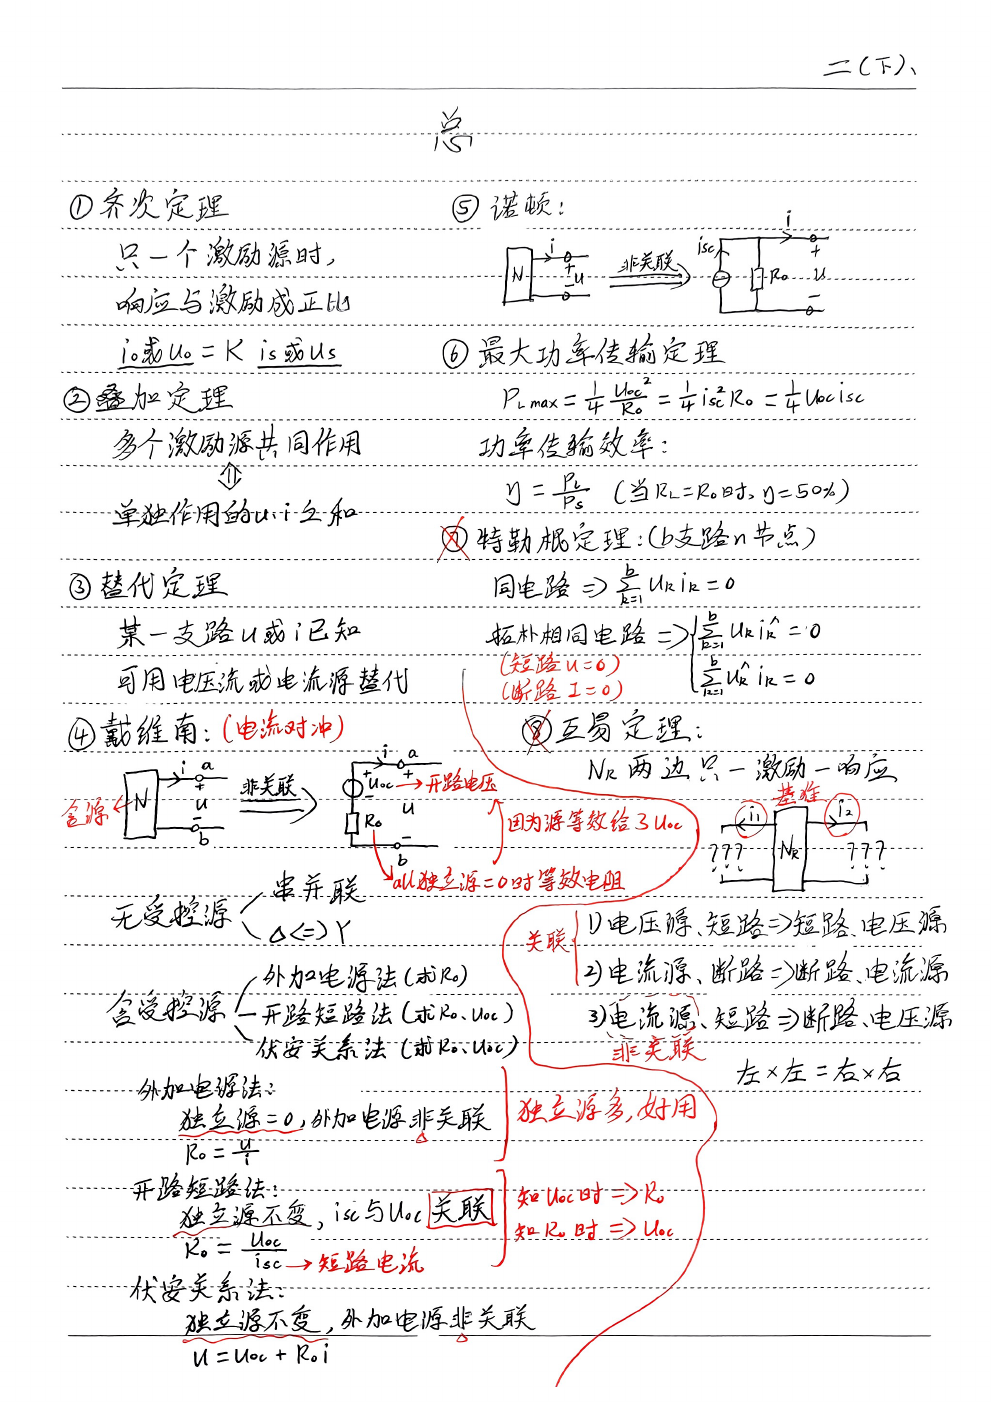 二(下)、
总
①齐次定理
只一个激励源时,
响应与激励成正比
i₀或u₀ = K is或us
②叠加定理
多个激励源共同作用
⇕
单独作用的u、i之和
③替代定理
某一支路u或i已知
可用电压流或电流源替代
④戴维南:(电流对冲)
含源
N
i
a
+
u
-
b
非关联
i
a
+
Uoc
-
→开路电压
+
u
-
R₀
b
因为源等效给了Uoc
all独立源=0时等效电阻
无受控源
串并联
△<=>Y
含受控源
外加电源法(求R₀)
开路短路法(求R₀、Uoc)
伏安关系法(求R₀、Uoc)
外加电源法:
独立源=0,外加电源非关联
R₀ = u/i
独立源多,好用
开路短路法:
独立源不变,isc与Uoc关联
R₀ = Uoc/isc →短路电流
知Uoc时 => R₀
知R₀时 => Uoc
伏安关系法:
独立源不变,外加电源非关联
u = Uoc + R₀i
⑤诺顿:
N
i
+
u
-
非关联
isc
R₀
i
+
u
-
⑥最大功率传输定理
PLmax = 1/4 Uoc²/R₀ = 1/4 isc²R₀ = 1/4 Uoc isc
功率传输效率:
η = PL/Ps (当RL=R₀时、η=50%)
⑦特勒根定理:(b支路n节点)
同电路 => ∑(k=1→b) uk ik = 0
拓朴相同电路 => { ∑(k=1→b) uk îk = 0
∑(k=1→b) ûk ik = 0
(短路u=0)
(断路I=0)
⑧互易定理:
NR两边只一激励一响应
基准
i₁
NR
i₂
???
???
关联
1)电压源、短路=>短路、电压源
2)电流源、断路=>断路、电流源
3)电流源、短路=>断路、电压源
非关联
左×左=右×右